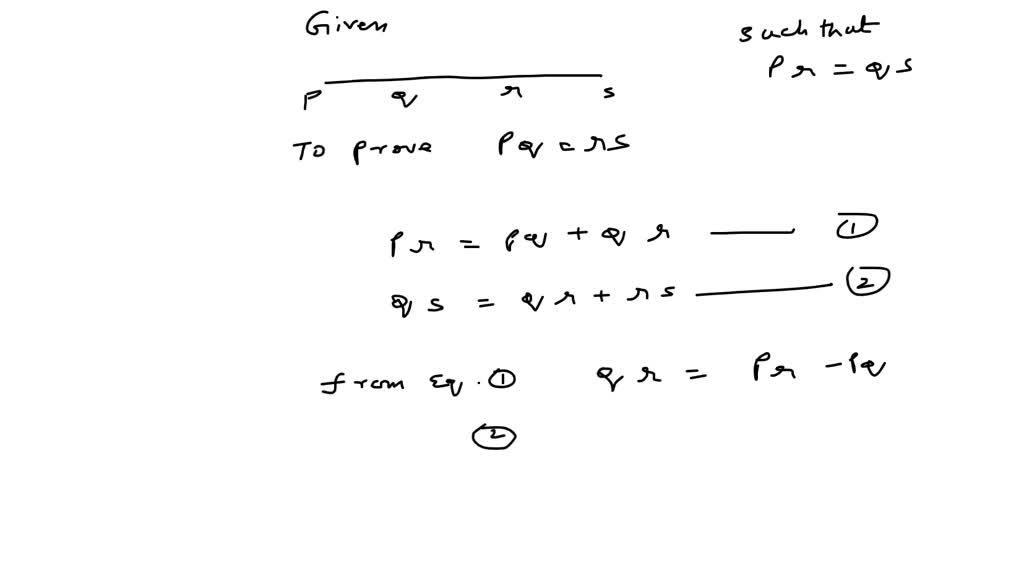 Given
such that
Pr = qs
P q r s
To prove Pq = rs
Pr = Pq + qr — ①
qs = qr + rs — ②
from Eq. ① qr = Pr - Pq
②